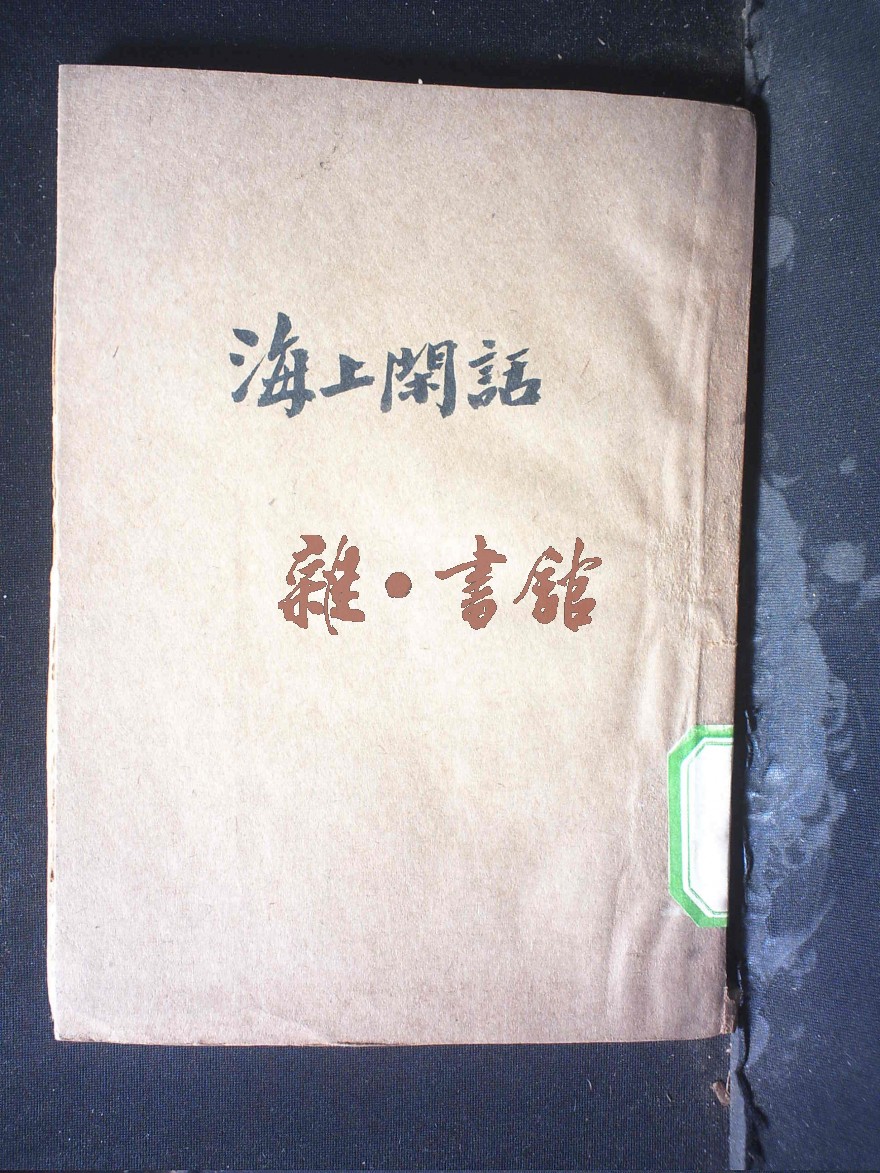 海上閑話
雜·書館